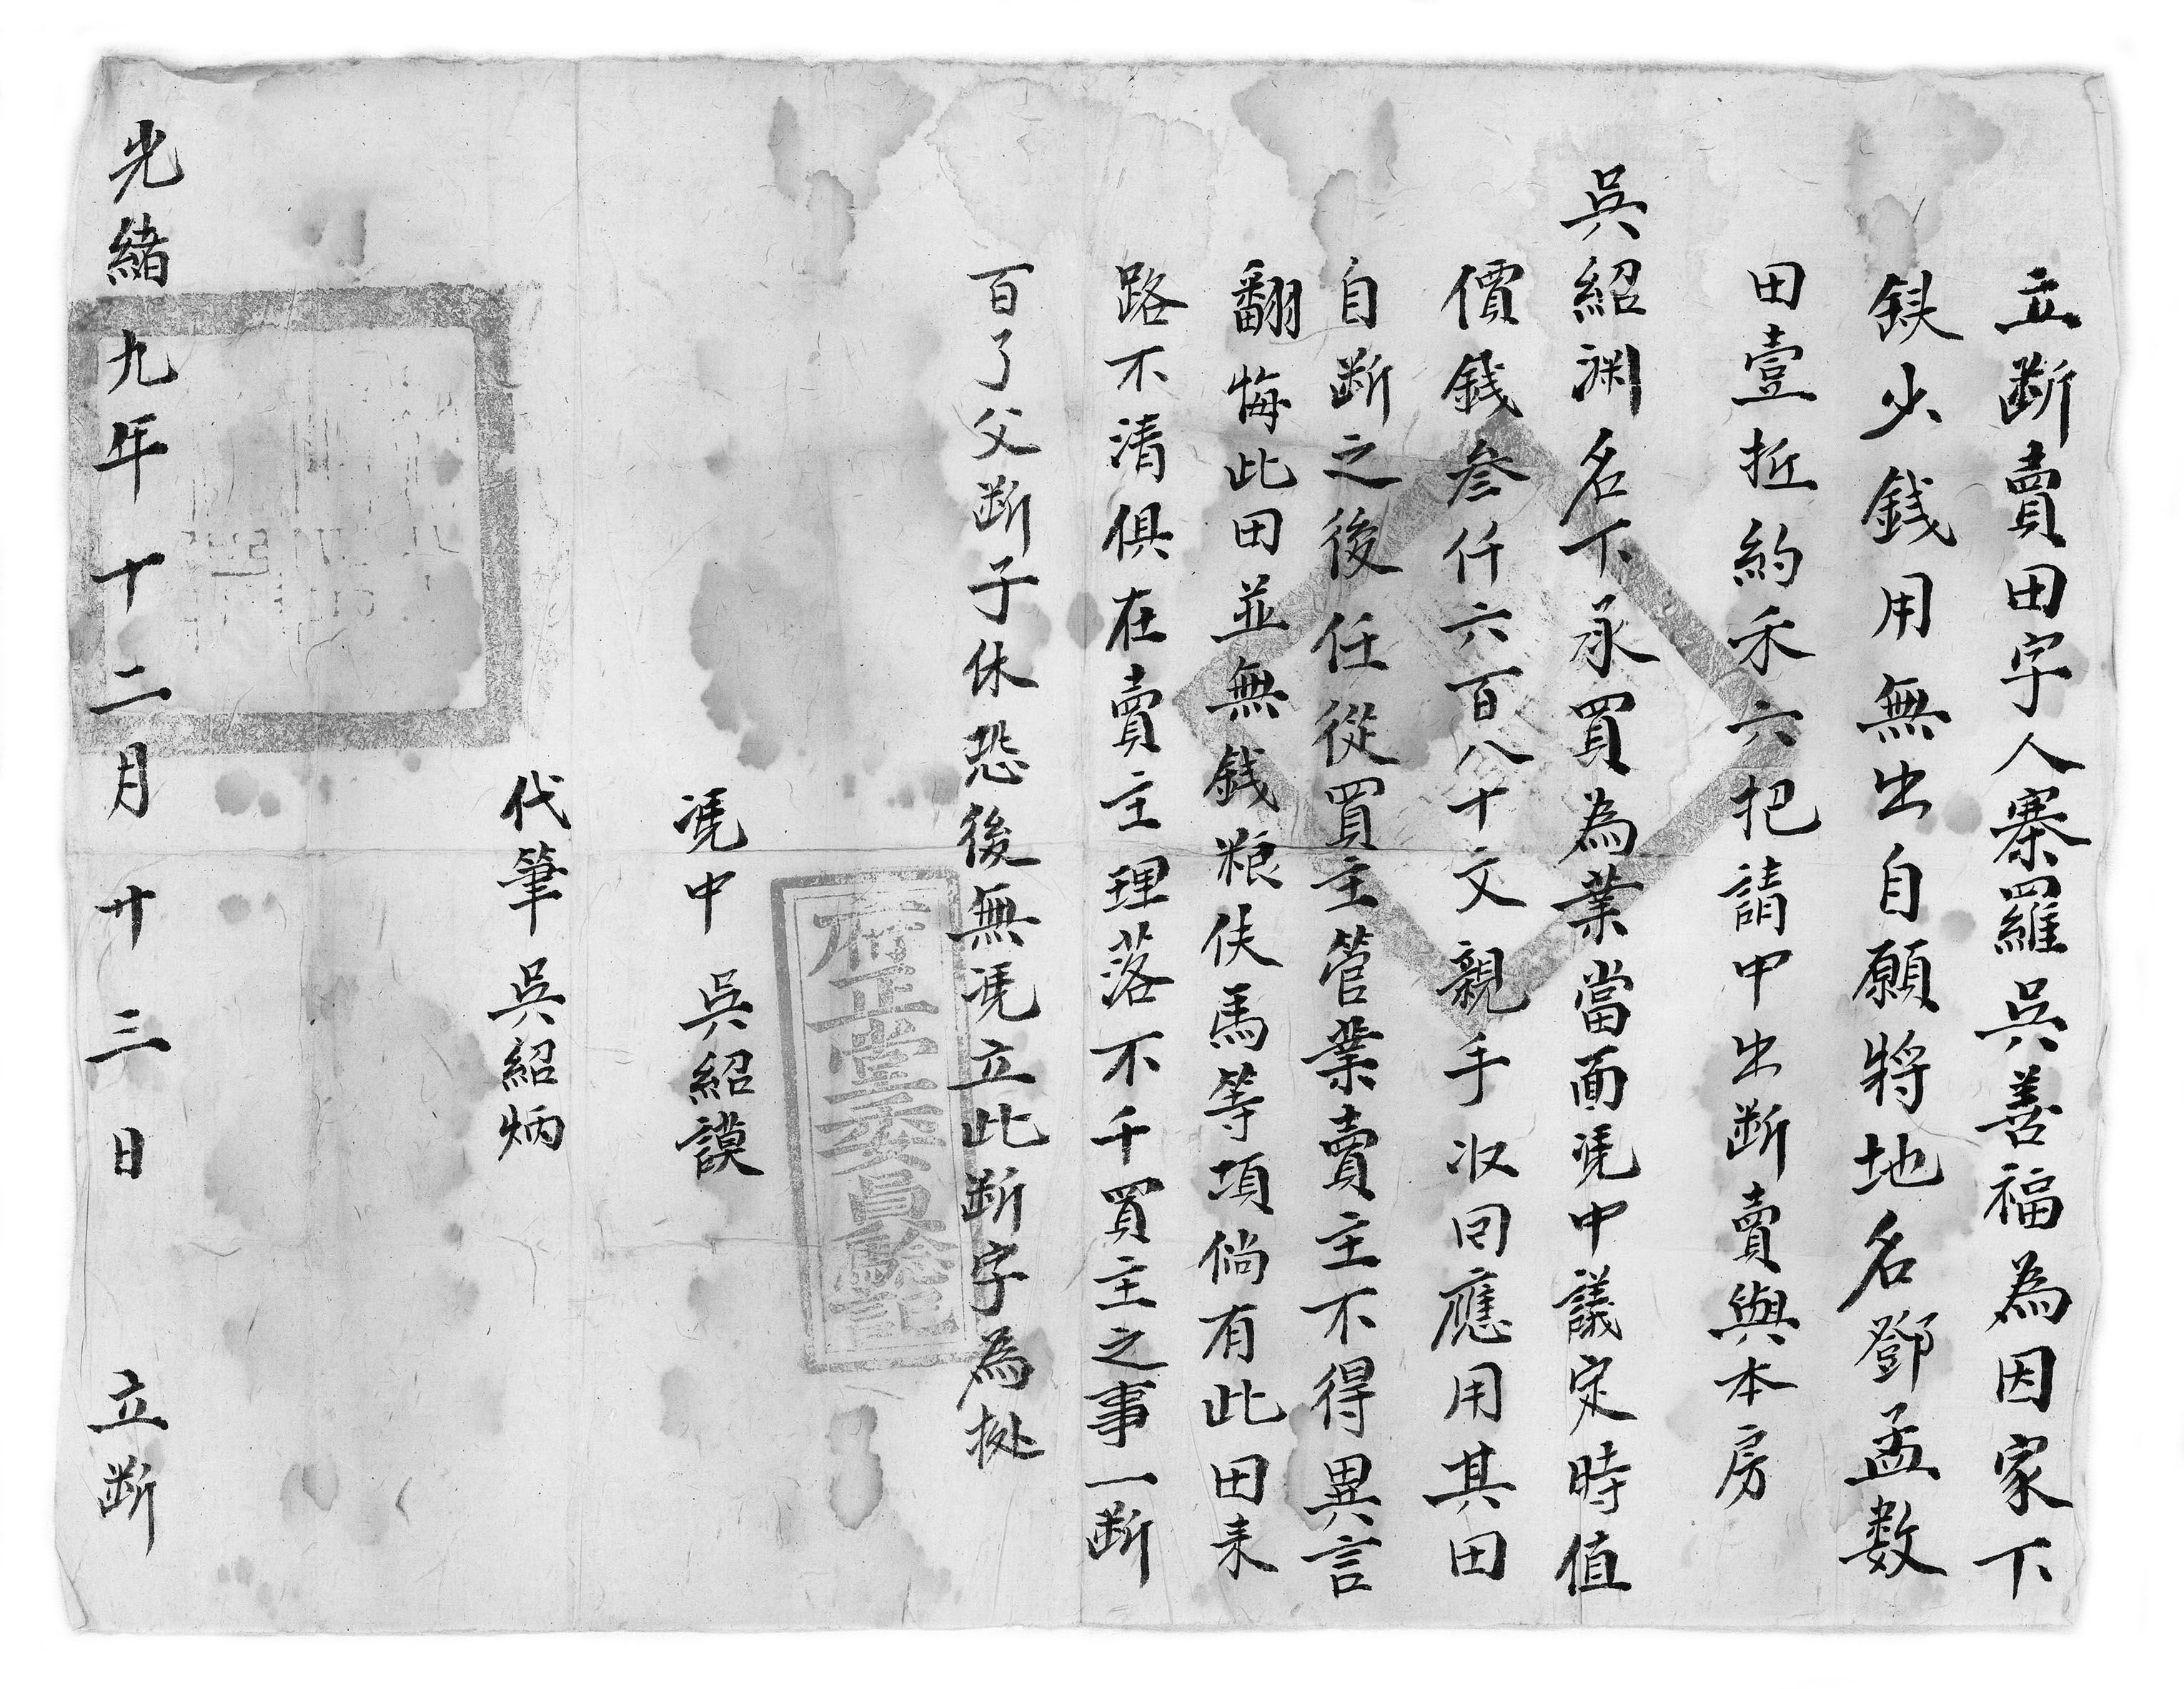 立断賣田字人寨羅吳善福為因家下
鈌少錢用無出自願將地名鄧孟数
田壹坵約禾六把請中出断賣與本房
吳紹渊名下承買為業當面凴中議定時值
價錢叁仟六百八十文親手收囘應用其田
自断之後任從買主管業賣主不得異言
翻悔此田並無錢粮伕馬等項倘有此田耒
路不清俱在賣主理落不干買主之事一断
百了父断子休恐後無凴立此断字為㨿
府正堂委員驗記
凴中 吳紹謨
代筆 吳紹炳
光緒九年十二月廿三日 立断